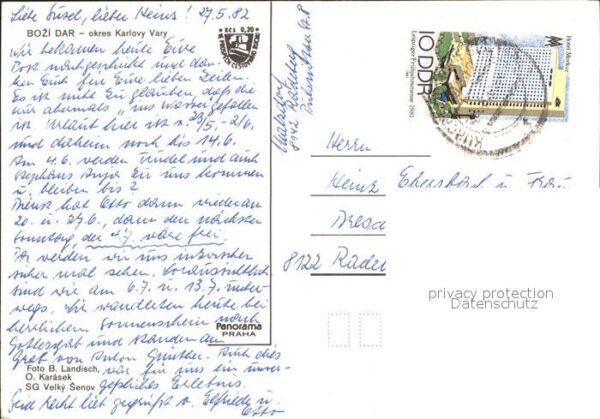 Liebe Susel, lieber Heinz! 27.5.82
BOŽÍ DAR – okres Karlovy Vary
Kčs 0,20
Wir bekamen heute Eure
Post nachgeschickt und dan-
ken Euch für Eure lieben Zeilen.
Es ist nicht zu glauben, daß die
wir abermals „ins Wasser gefallen
ist. Urlaub hier ist v. 23/5.-2/6.
und daheim noch bis 14.6.
Am 4.6. werden und auch
Stephans Anja zu uns kommen
u. bleiben bis?
Dienst hat Otto dann wieder am
20. u. 27.6., dann den nächsten
Sonntag, der 4.7. wäre frei.
Ob werden wir uns inzwischen
sicher mal sehen. Voraussichtlich
sind wir am 6.7. u. 13.7. unter-
wegs. Wir wandelten heute bei
herrlichem Sonnenschein nach
Gottesgab und standen am
Grab von Anton Günther. Auch dies
war für uns ein unver-
geßliches Erlebnis.
Seid recht lieb gegrüßt v. Elfriede u.
Otto
Panorama
PRAHA
Foto B. Landisch,
O. Karásek
SG Velký Šenov
8142 Radeberg
Hotel Merkur
10 DDR
Leipziger Frühjahrsmesse 1981
Herrn
Heinz Ebersbach u. Frau
Dresd
8122 Radeb
privacy protection
Datenschutz